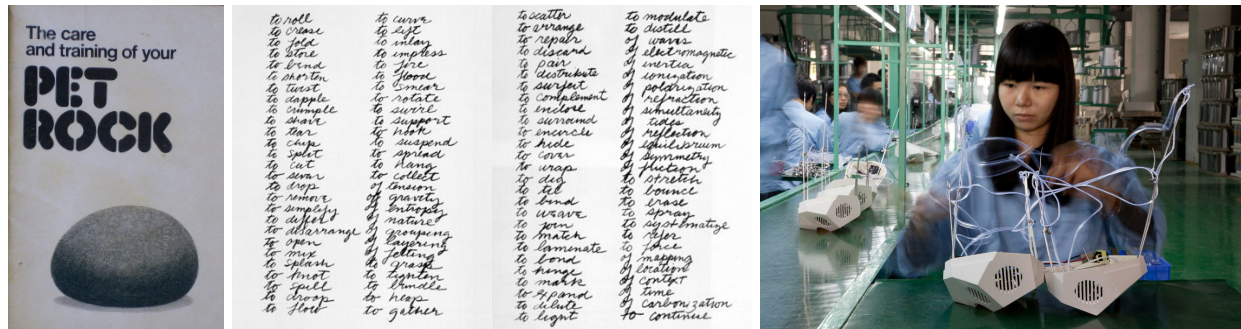 The care
and training of your
PET
ROCK
to roll
to crease
to fold
to store
to bend
to shorten
to twist
to dapple
to crumple
to shave
to tear
to chip
to split
to cut
to sever
to drop
to remove
to simplify
to differ
to disarrange
to open
to mix
to splash
to knot
to spill
to droop
to flow
to curve
to lift
to inlay
to impress
to fire
to flood
to smear
to rotate
to swirl
to support
to hook
to suspend
to spread
to hang
to collect
of tension
of gravity
of entropy
of nature
of grouping
of layering
of felting
to grasp
to tighten
to bundle
to heap
to gather
to scatter
to arrange
to repair
to discard
to pair
to distribute
to surfeit
to complement
to enclose
to surround
to encircle
to hide
to cover
to wrap
to dig
to tie
to bind
to weave
to join
to match
to laminate
to bond
to hinge
to mark
to expand
to dilute
to light
to modulate
to distill
of waves
of electromagnetic
of inertia
of ionization
of polarization
of refraction
of simultaneity
of tides
of reflection
of equilibrium
of symmetry
of friction
to stretch
to bounce
to erase
to spray
to systematize
to refer
to force
of mapping
of location
of context
of time
of carbonization
to continue